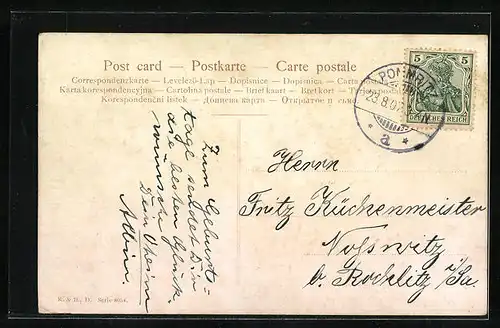 Post card — Postkarte — Carte postale
Correspondenzkarte — Levelező-Lap — Dopisnice — Dopisnica — Carta
Karta korespondencyjna — Cartolina postale — Briefkaart — Bretkort —
Korespondenční lístek — Дописна карта — Открытое
5 5
DEUTSCHES REICH
23.8.0
* a *
Zum Geburts-
tage sendet Dir
die besten Glück-
wünsche
Dein Oheim
Albin.
Herrn
Fritz Küchenmeister
Noßwitz
b. Rochlitz i/Sa.
Serie 8054.